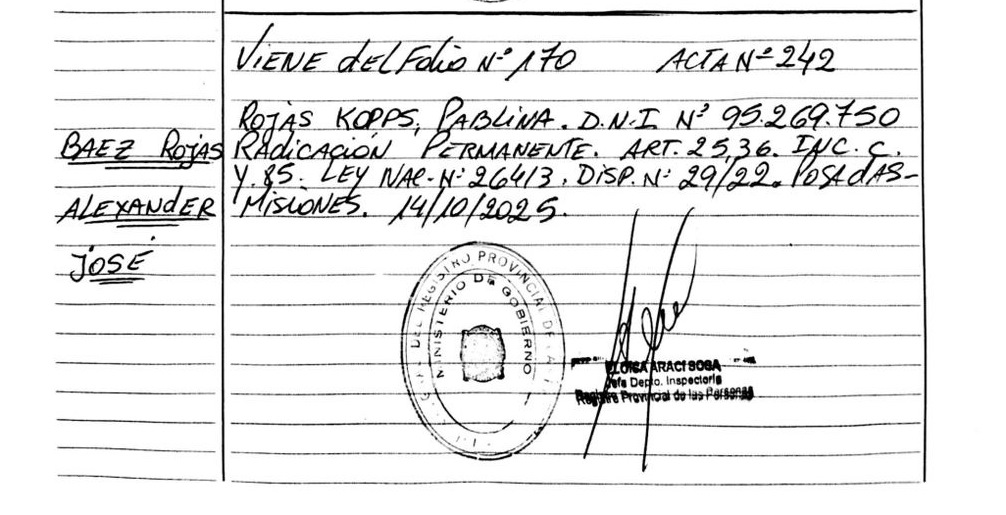 Viene del Folio Nº 170 ACTA Nº 242
BAEZ Rojas
ALEXANDER
JOSÉ
ROJAS KOPPS, PABLINA. D.N.I Nº 95.269.750
RADICACIÓN PERMANENTE. ART. 25,36. INC. C.
Y. 85. LEY NAC. Nº 26413. DISP. Nº 29/22. POSADAS-
MISIONES. 14/10/2025.
DEL REGISTRO PROVINCIAL DE LAS
MINISTERIO DE GOBIERNO
ARACI SOSA
Jefe Depto. Inspectoría
Registro Provincial de las Personas